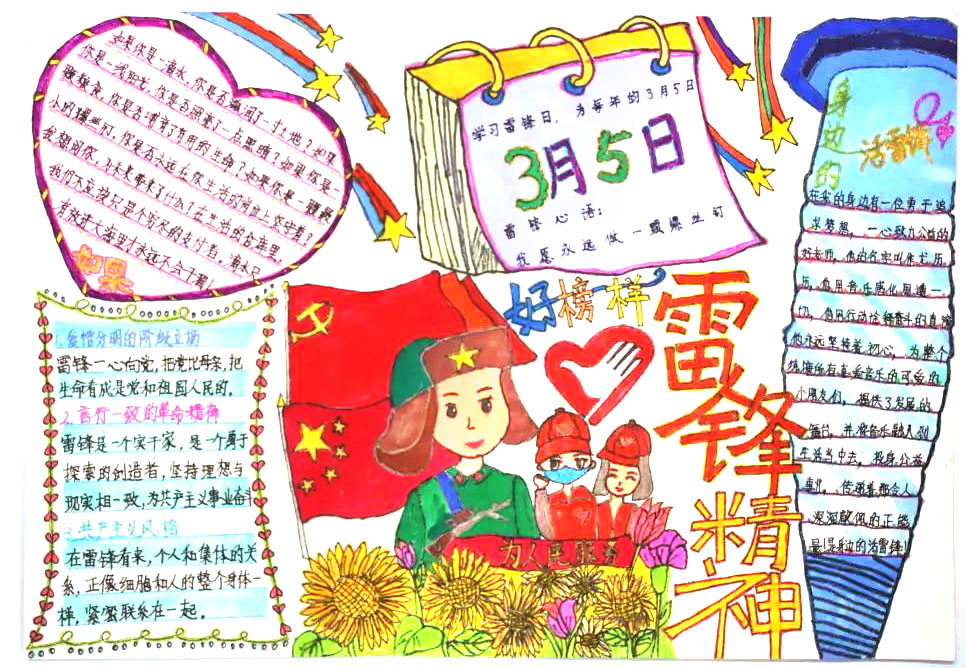 如果你是一滴水,你是否滋润了一寸土地?如果
你是一线阳光,你是否照亮了一点黑暗?如果你是一颗
粮食,你是否哺育了有用的生命?如果你是一颗最
小的螺丝钉,你是否永远在你生活的岗位上坚守着?
我想问你,为未来带来了什么?在生活的仓库里,
我们不应该只是个的支付者。滴水只
有放进大海里才永远不会干涸!
如果
学习雷锋日,为每年的3月5日
3月5日
雷锋心语:
我愿永远做一颗螺丝钉
身边的
活雷锋
在我的身边有一位勇于追
求梦想,一心致力公益的
好老师,他的名字叫
用音乐感化周遭一
切,用行动诠释奋斗的真谛
他永远坚持着初心,为整个
所有喜爱音乐的可爱的
小朋友们,提供了发展的
舞台,并将音乐融入到
生活当中去,投身公益
事业,传递着那令人
深深敬佩的正能
是身边的活雷锋!
1.爱憎分明的阶级立场
雷锋一心向党,把党比母亲,把
生命看成是党和祖国人民的。
2.言行一致的革命精神
雷锋是一个实干家,是一个勇于
探索的创造者,坚持理想与
现实相一致,为共产主义事业奋斗
3.共产主义风格
在雷锋看来,个人和集体的关
系,正像细胞和人的整个身体一
样,紧密联系在一起。
好榜样
雷锋精神
为人民服务